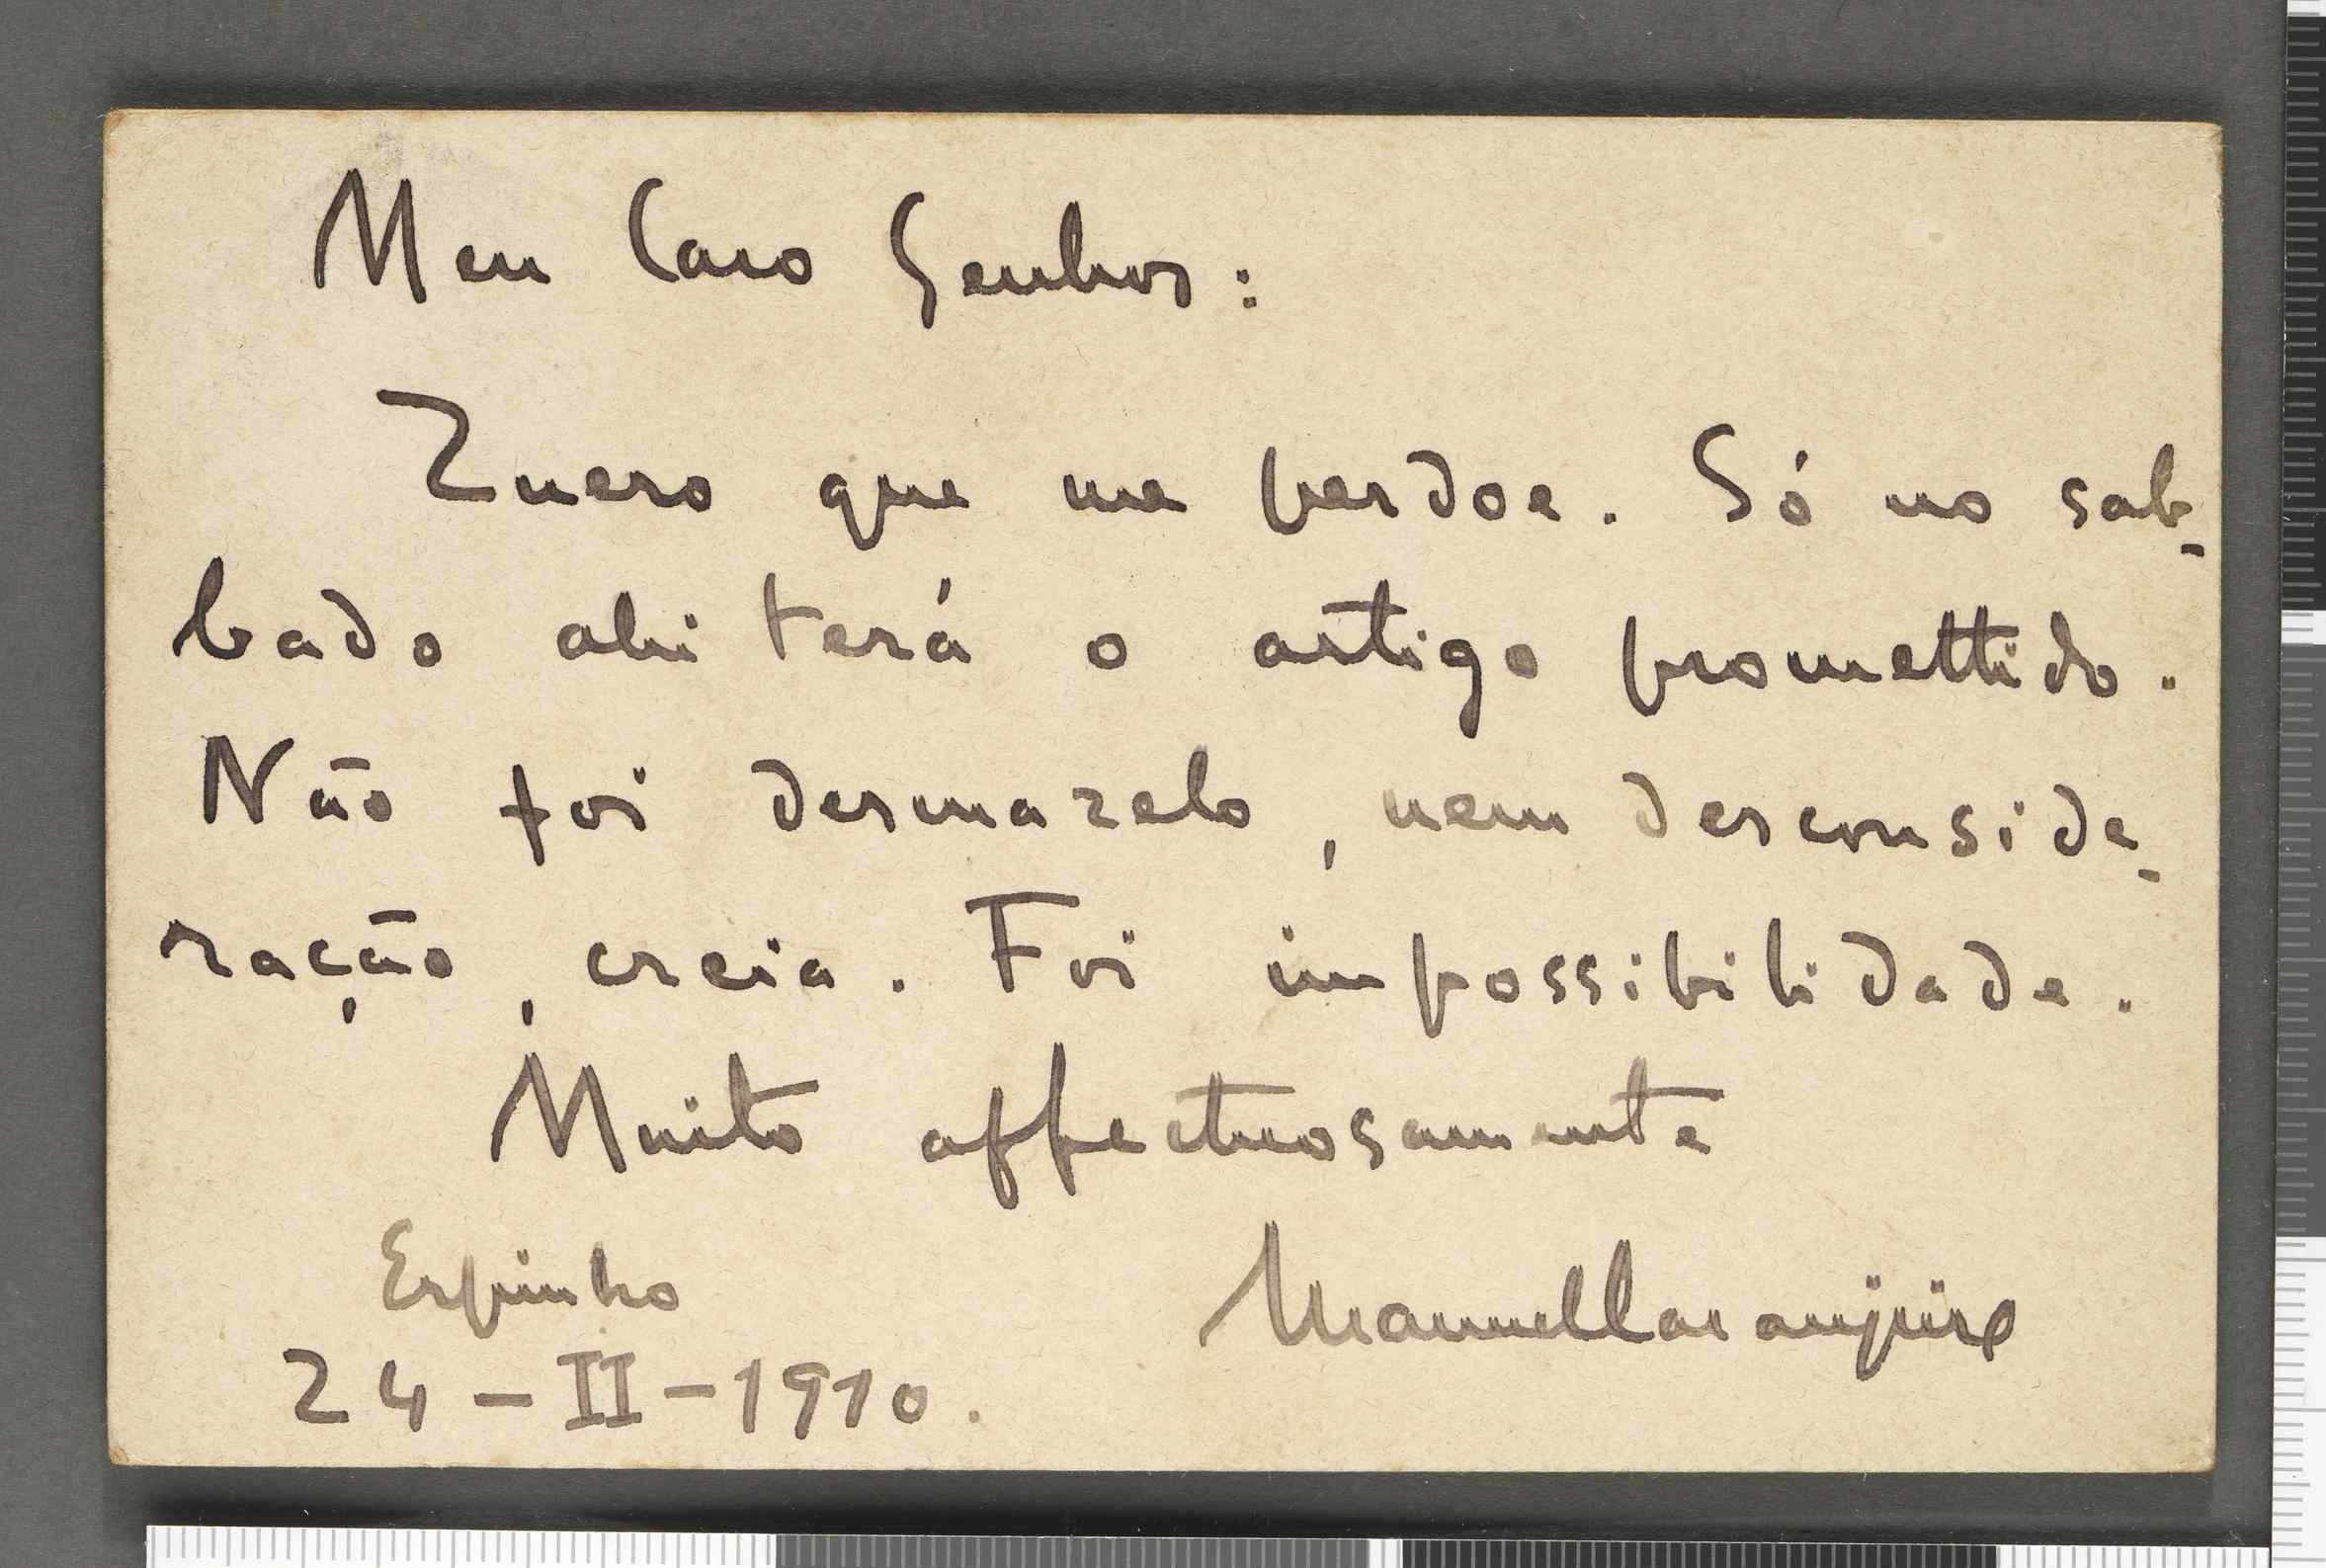 Meu Caro Senhor:
Quero que me perdoe. Só no sab-
bado ahi terá o artigo promettido.
Não foi desmazelo, nem desconside-
ração, creia. Foi impossibilidade.
Muito affectuosamente
Espinho
Manuel Laranjeira
24-II-1910.